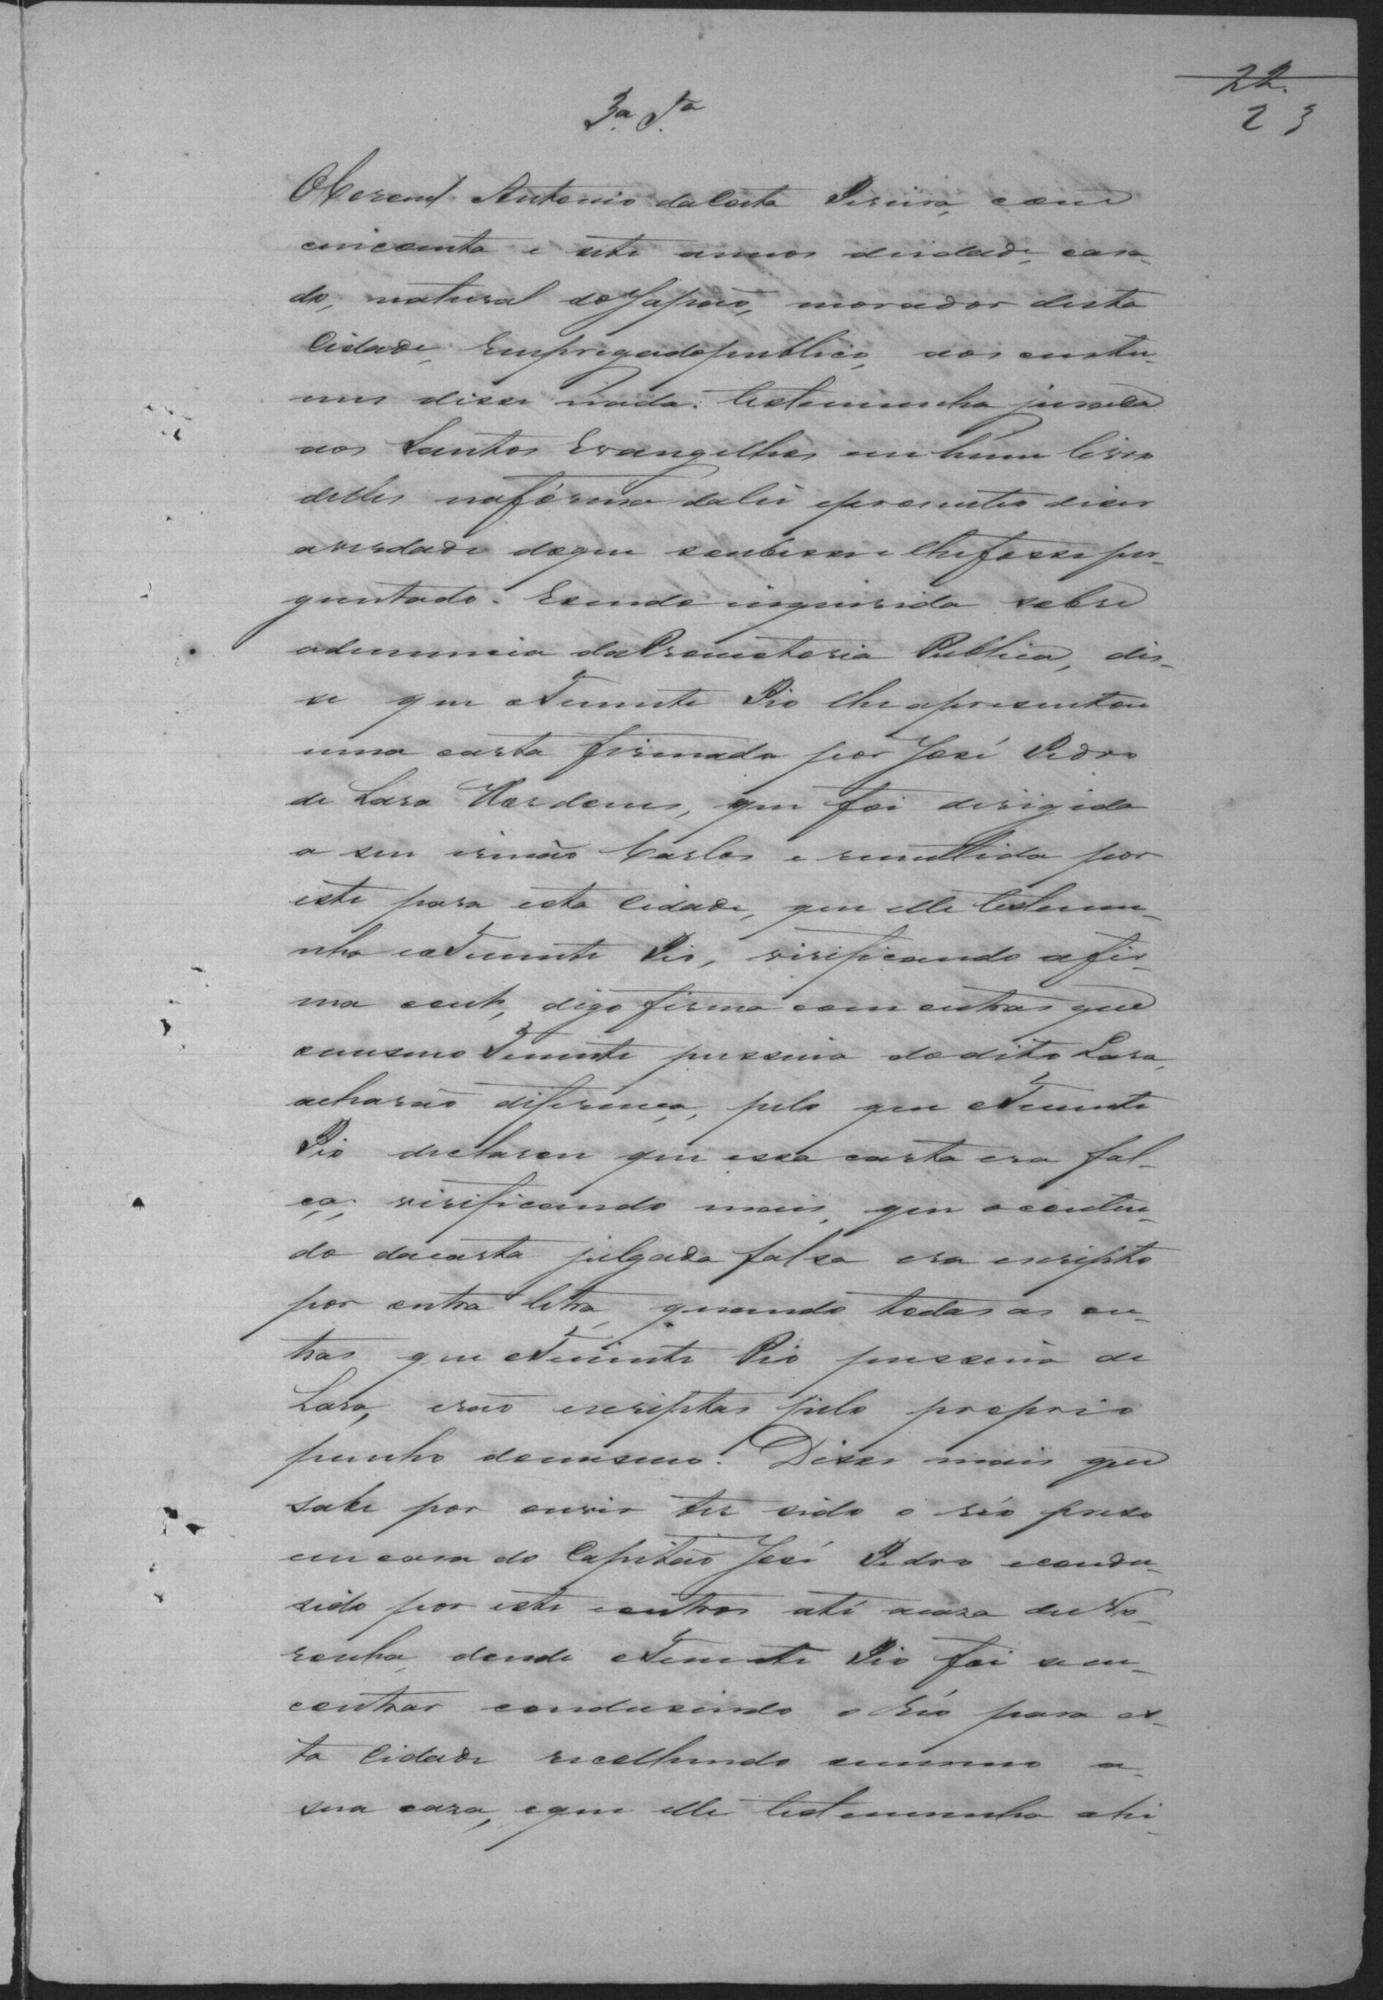 22.
23
3ª Tª
Antonio da Costa Pereira, com
cincoenta e sete annos de idade, casa-
do, natural do Japão, morador desta
Cidade, Empregado publico, aos custu-
mes disse nada. Testemunha jurada
aos Santos Evangelhos em hum livro
delles na fórma da lei e prometeo diser
a verdade do que soubesse e lhe fosse per-
guntado. E sendo inquirida sobre
a denuncia da Promotoria Publica, dis-
se que o Tenente Pio lhe apresentou
uma carta firmada por José Pedro
de Lara, que foi dirigida
a seu irmão Carlos e remettida por
este para esta Cidade, que elle testemu-
nha e o Tenente Pio, virificando a fir-
ma cont, digo firma com outras que
o mesmo Tenente pussuia do dito Lara,
acharão diferença, pelo que o Tenente
Pio declarou que essa carta era fal-
ça; virificando mais, que o conteu-
do da carta julgada falsa era escripto
por outra letra, quando todas as ou-
tras que o Tenente Pio pussuia de
Lara, erão escriptas pelo proprio
punho do mesmo. Disse mais que
sabe por ouvir ter sido o réo preso
em casa do Capitão José Pedro e condu-
sido por este e outros até a casa de No-
ronha, donde o Tenente Pio foi se en-
contrar condusindo o Réo para es-
ta Cidade recolhendo o mesmo a
sua casa, e que elle testemunha ahi